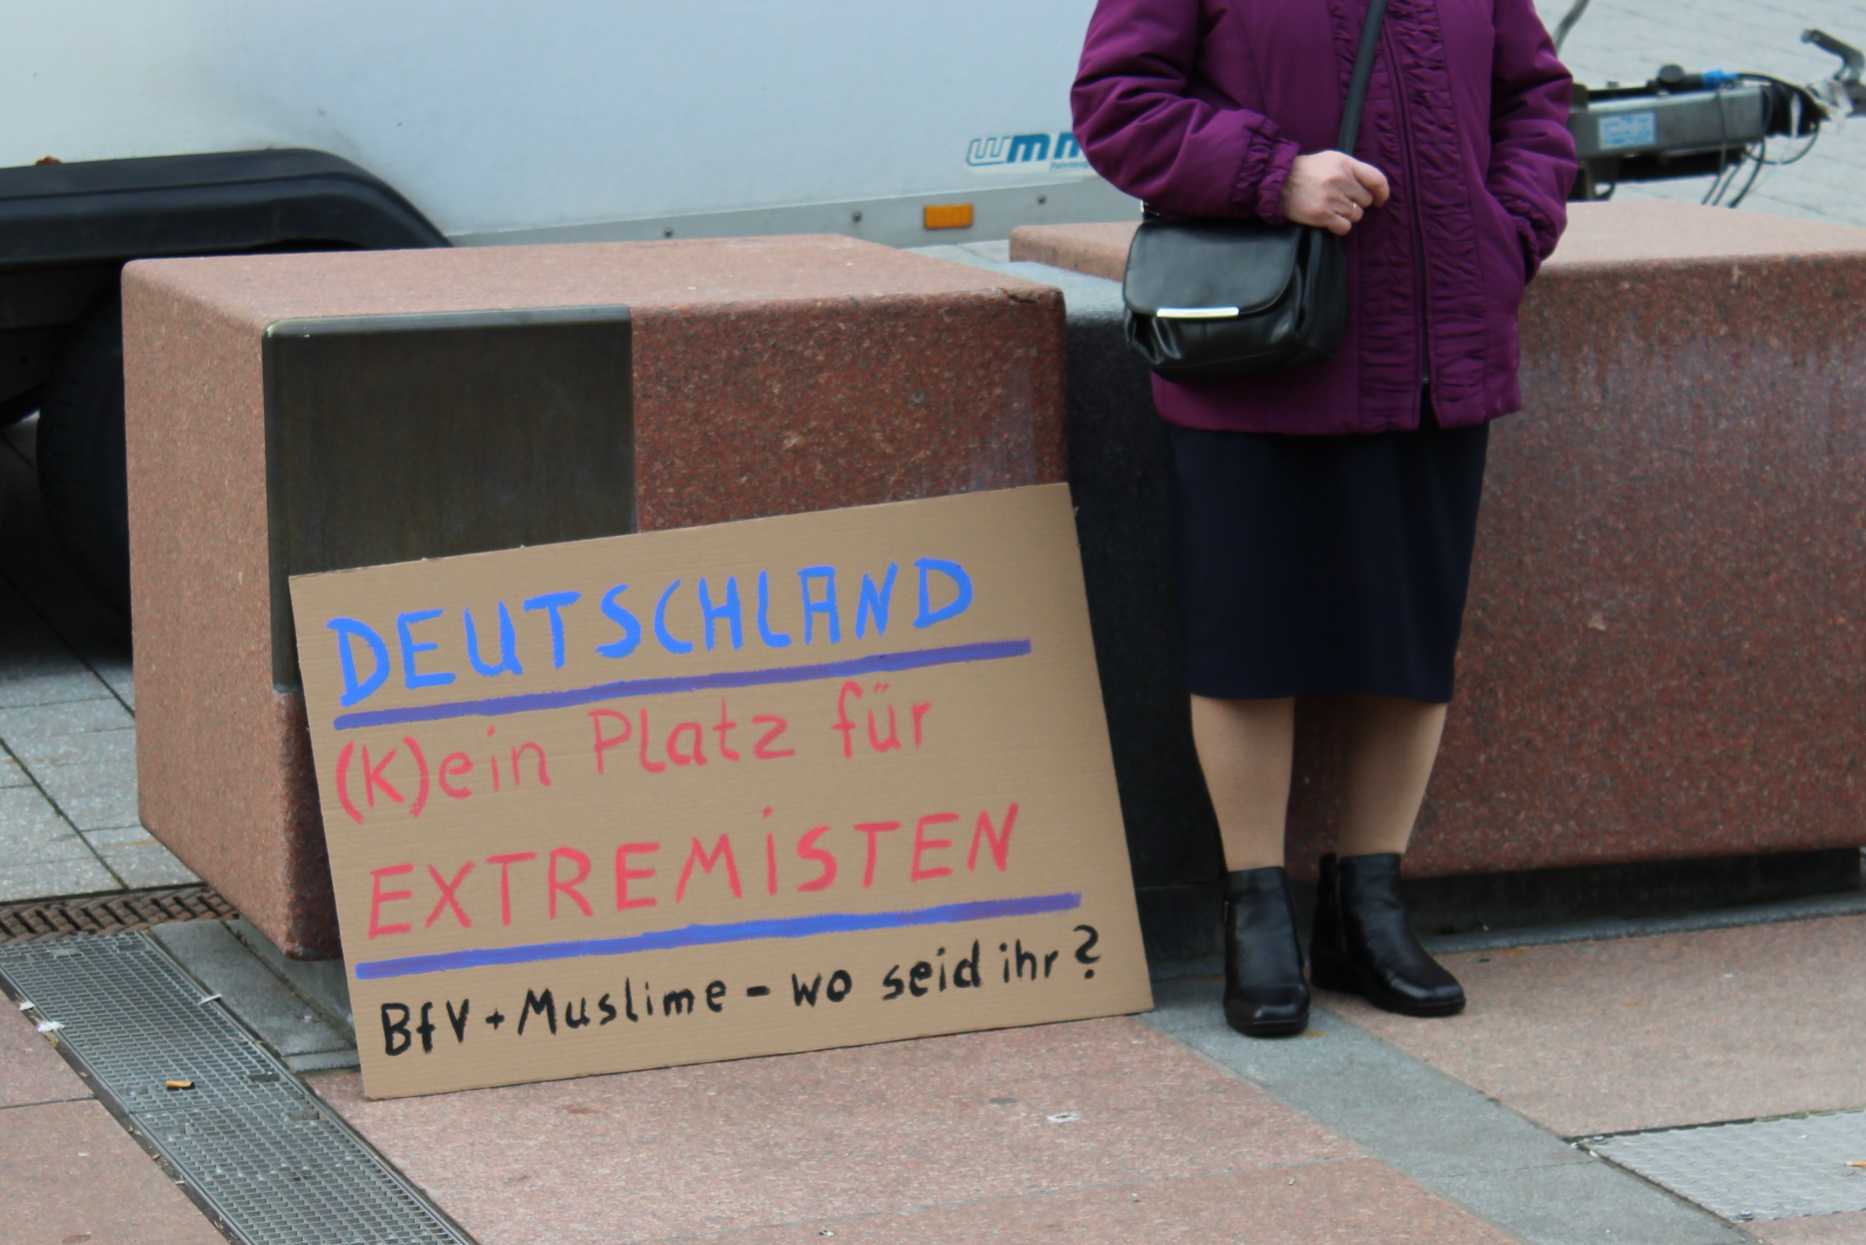 DEUTSCHLAND
(K)ein Platz für
EXTREMiSTEN
BfV + Muslime - wo seid ihr?